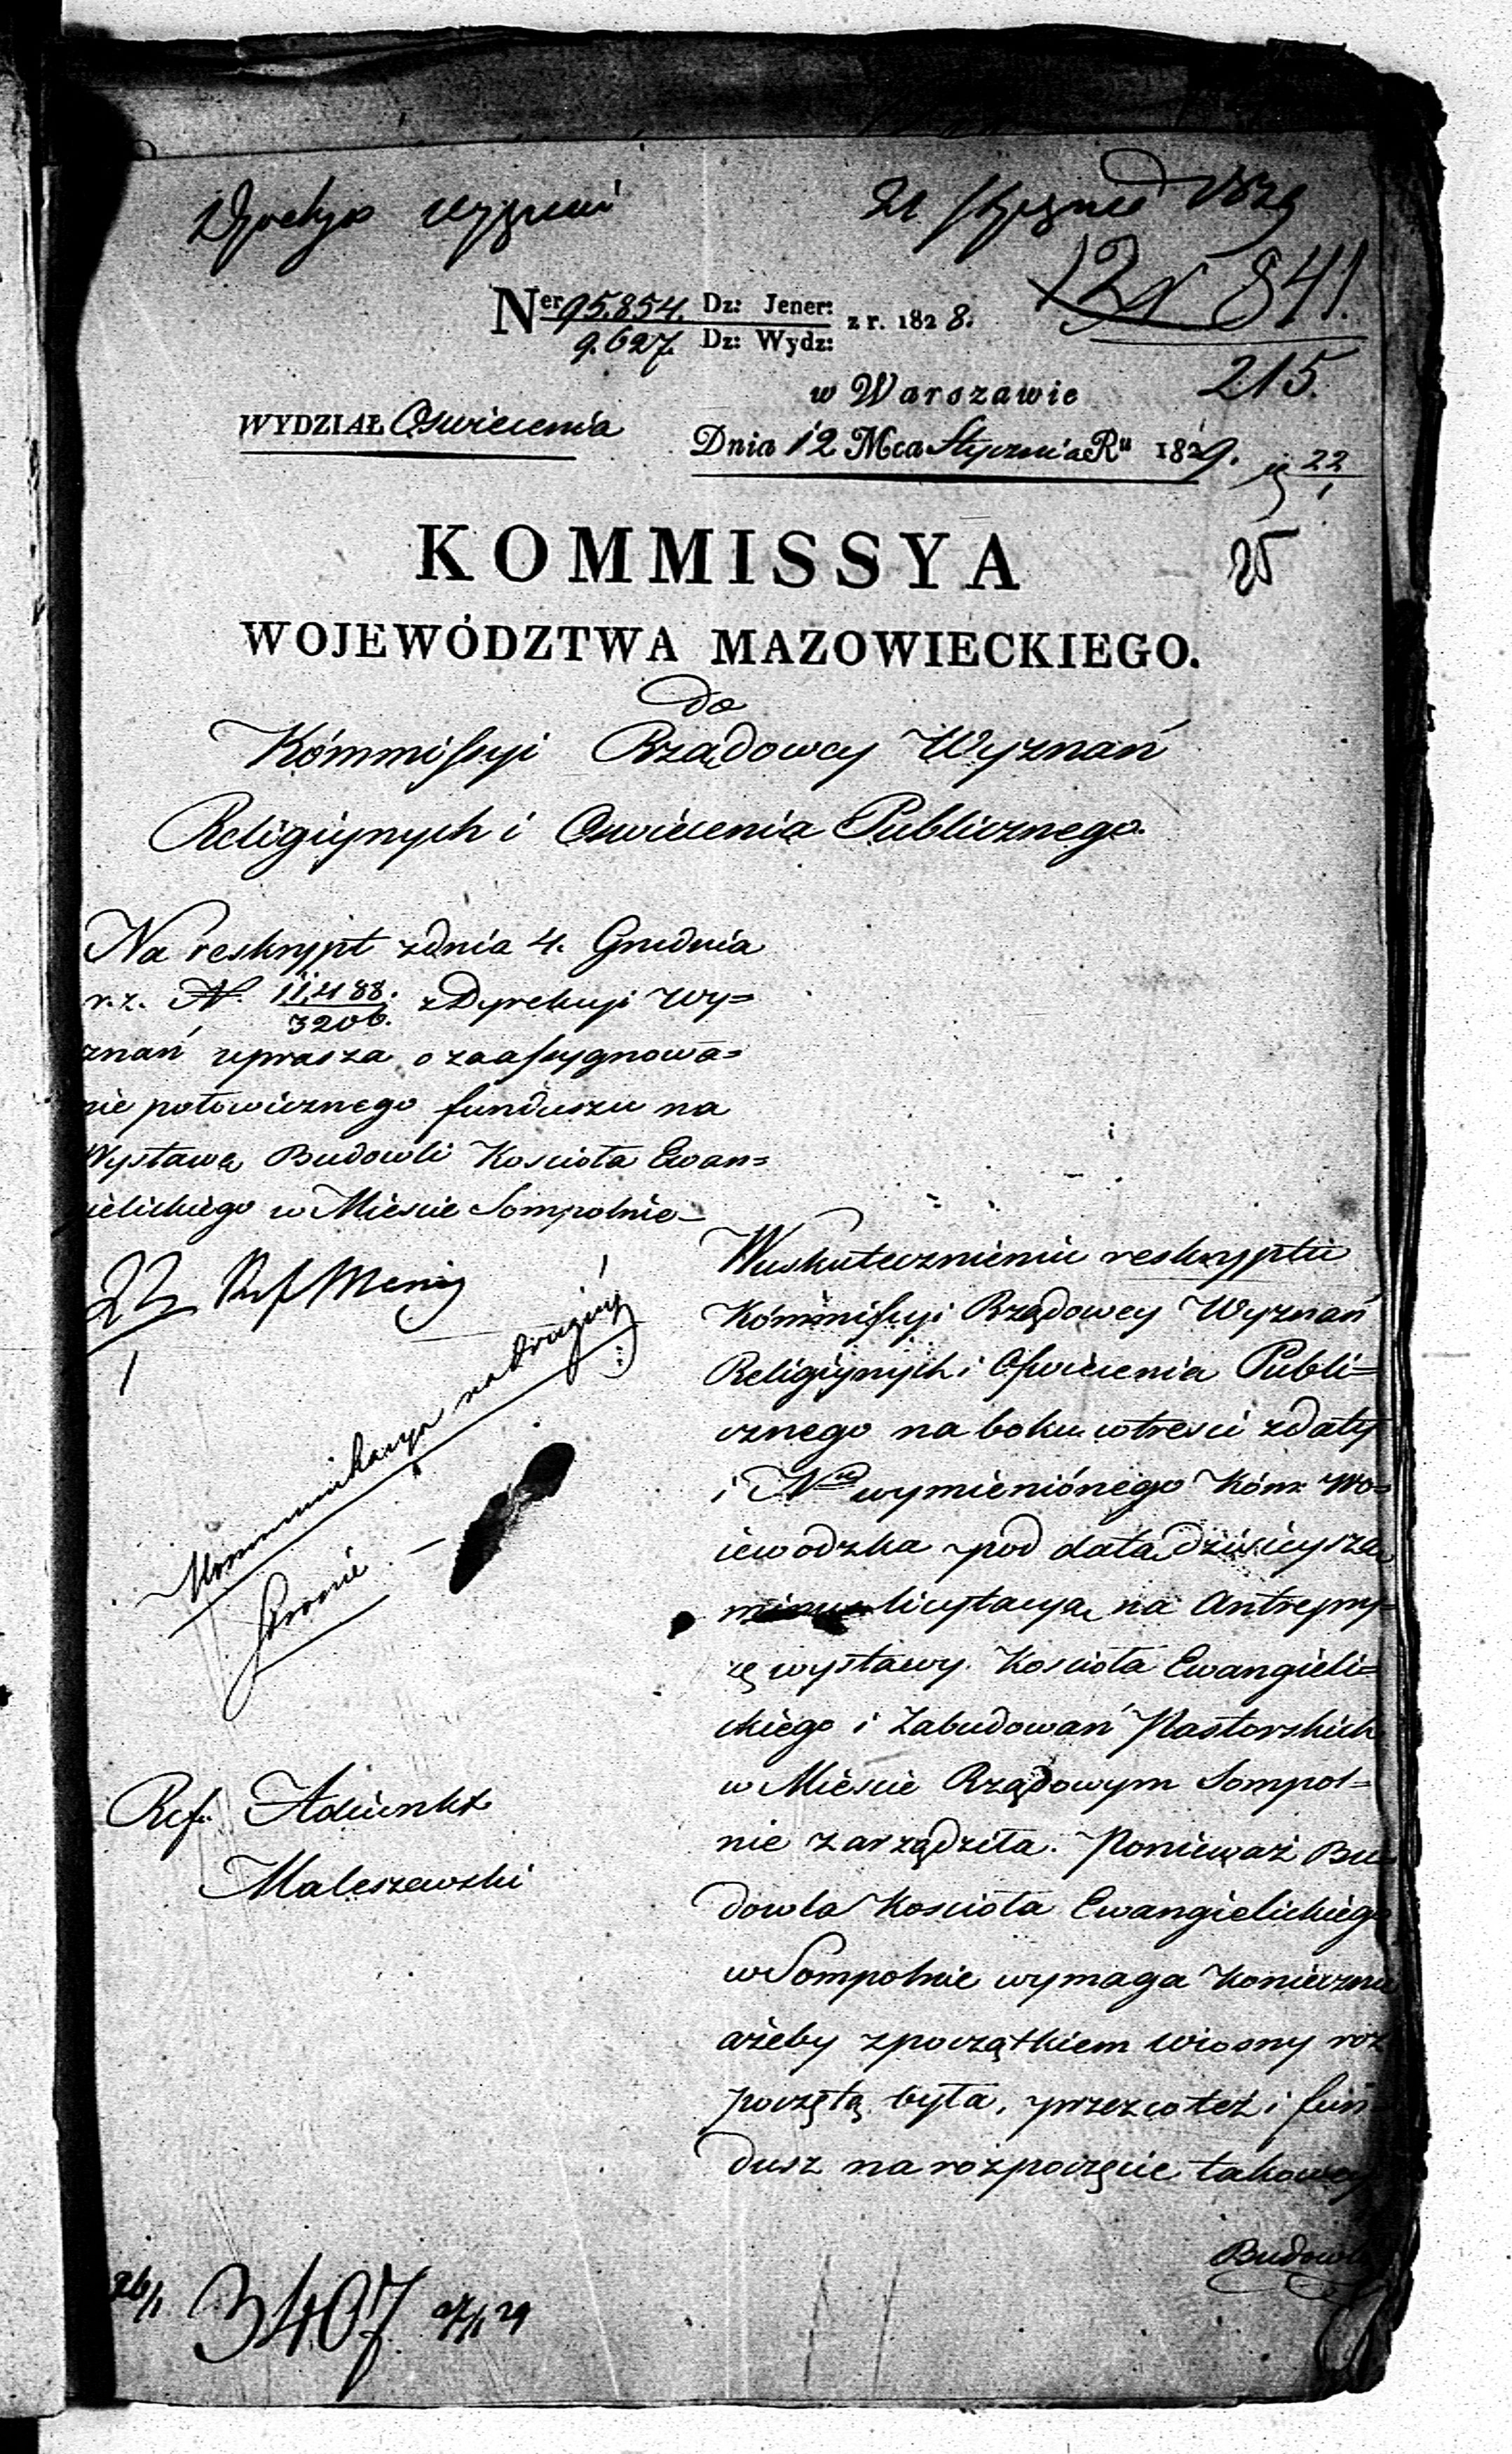 21 stycznia 1829
N 841.
215.
Ner 95.854. Dz: Jener: z r. 1828.
9.627. Dz: Wydz:
w Warszawie
WYDZIAŁ Oswiecenia
Dnia 12 Mca Stycznia Ru 1829.
22
1
25
KOMMISSYA
WOJEWÓDZTWA MAZOWIECKIEGO.
do
Kommissyi Rządowey Wyznań
Religiynych i Oswiecenia Publicznego.
Na reskrypt z dnia 4. Grudnia
r. z. N. 11,488. z Dyrekcyi Wy=
3206.
znań uprasza o zaassygnowa=
nie połowicznego funduszu na
Wystawę Budowli Kościoła Ewan=
gielickiego w Mieście Sompolnie
22
1
Kommunikacya na drugiey
stronie
Ref. Adiunkt
Maleszewski
W uskutecznieniu reskryptu
Kommissyi Rządowey Wyznań
Religiynych i Oswiecenia Publi=
cznego na boku w treści z daty
i Nru wymienionego Kom: Wo=
iewodzka pod datą dzisieyszą
licytacyą na Antrepry=
zę wystawy Kościoła Ewangieli=
ckiego i Zabudowań Pastorskich
w Mieście Rządowym Sompol=
nie zarządziła. Ponieważ Bu=
dowla Kościoła Ewangielickiego
w Sompolnie wymaga koniecznie
ażeby z początkiem wiosny roz
poczętą była, przez co też i fun=
dusz na rozpoczęcie takowey
Budowli
26/1 3407 29